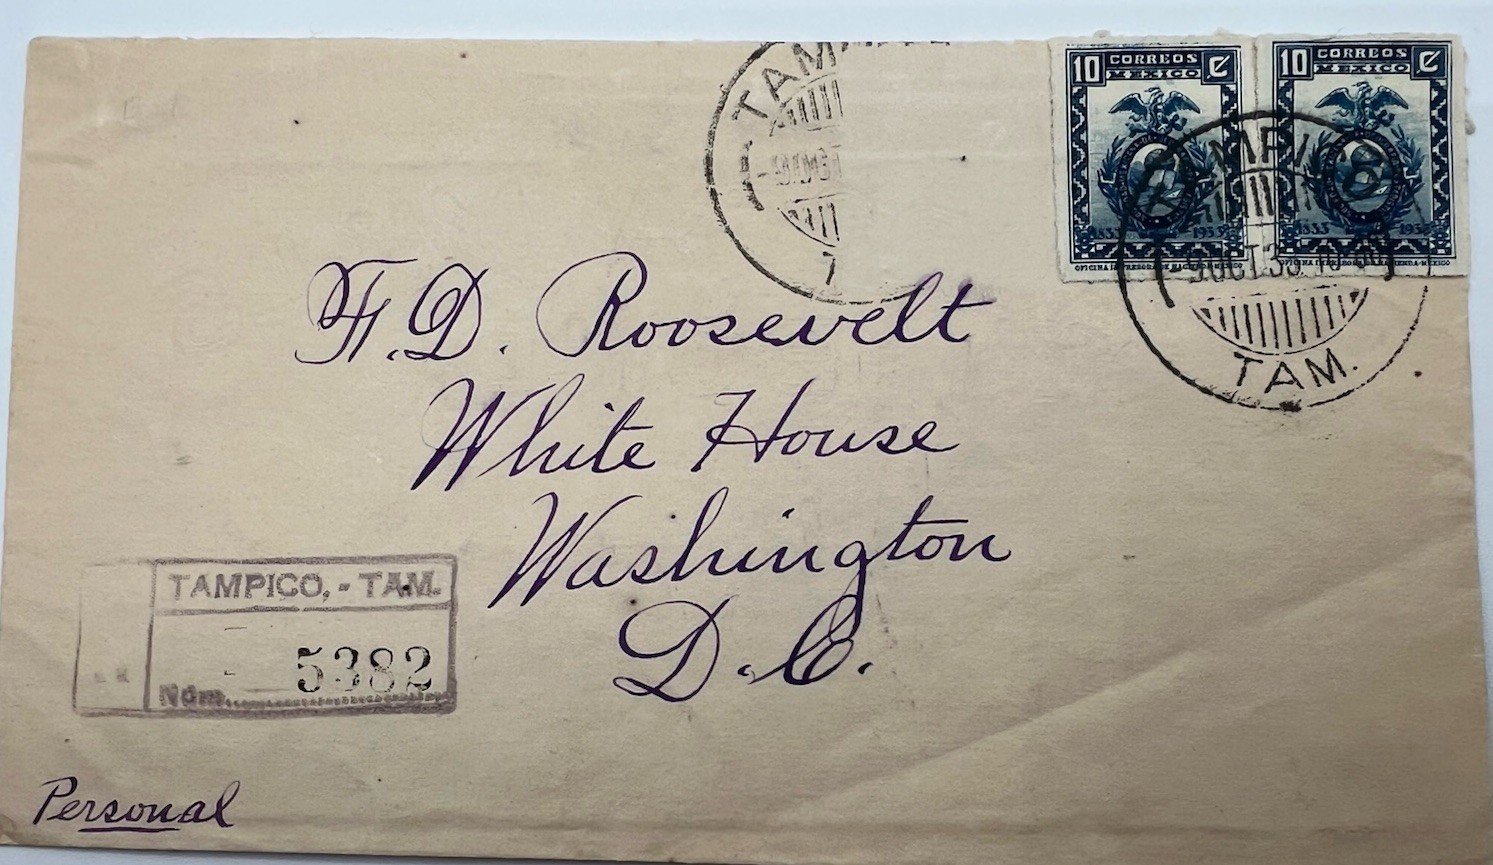 10 CORREOS ¢
MEXICO
1833 1933
OFICINA IMPRESORA DE HACIENDA-MEXICO
10 CORREOS ¢
MEXICO
1833 1933
TAMPICO
9 OCT 33
TAM.
TAM
F. D. Roosevelt
White House
Washington
D.C.
TAMPICO,-TAM.
Núm. 5382
Personal